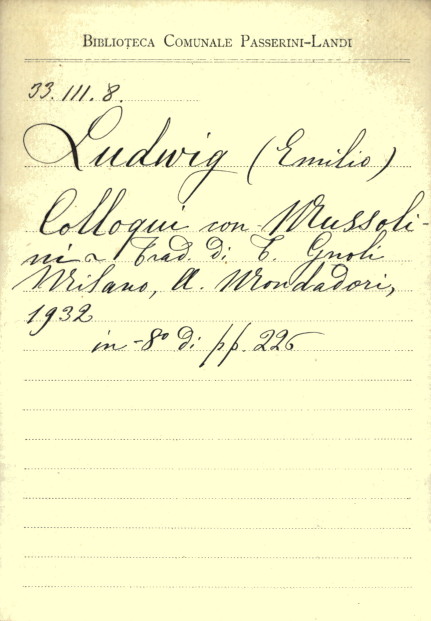 BIBLIOTECA COMUNALE PASSERINI-LANDI
33.III.8.
Ludwig (Emilio)
Colloqui con Mussoli-
ni - Trad. di T. Gnoli
Milano, A. Mondadori,
1932
in-8° di pp. 226